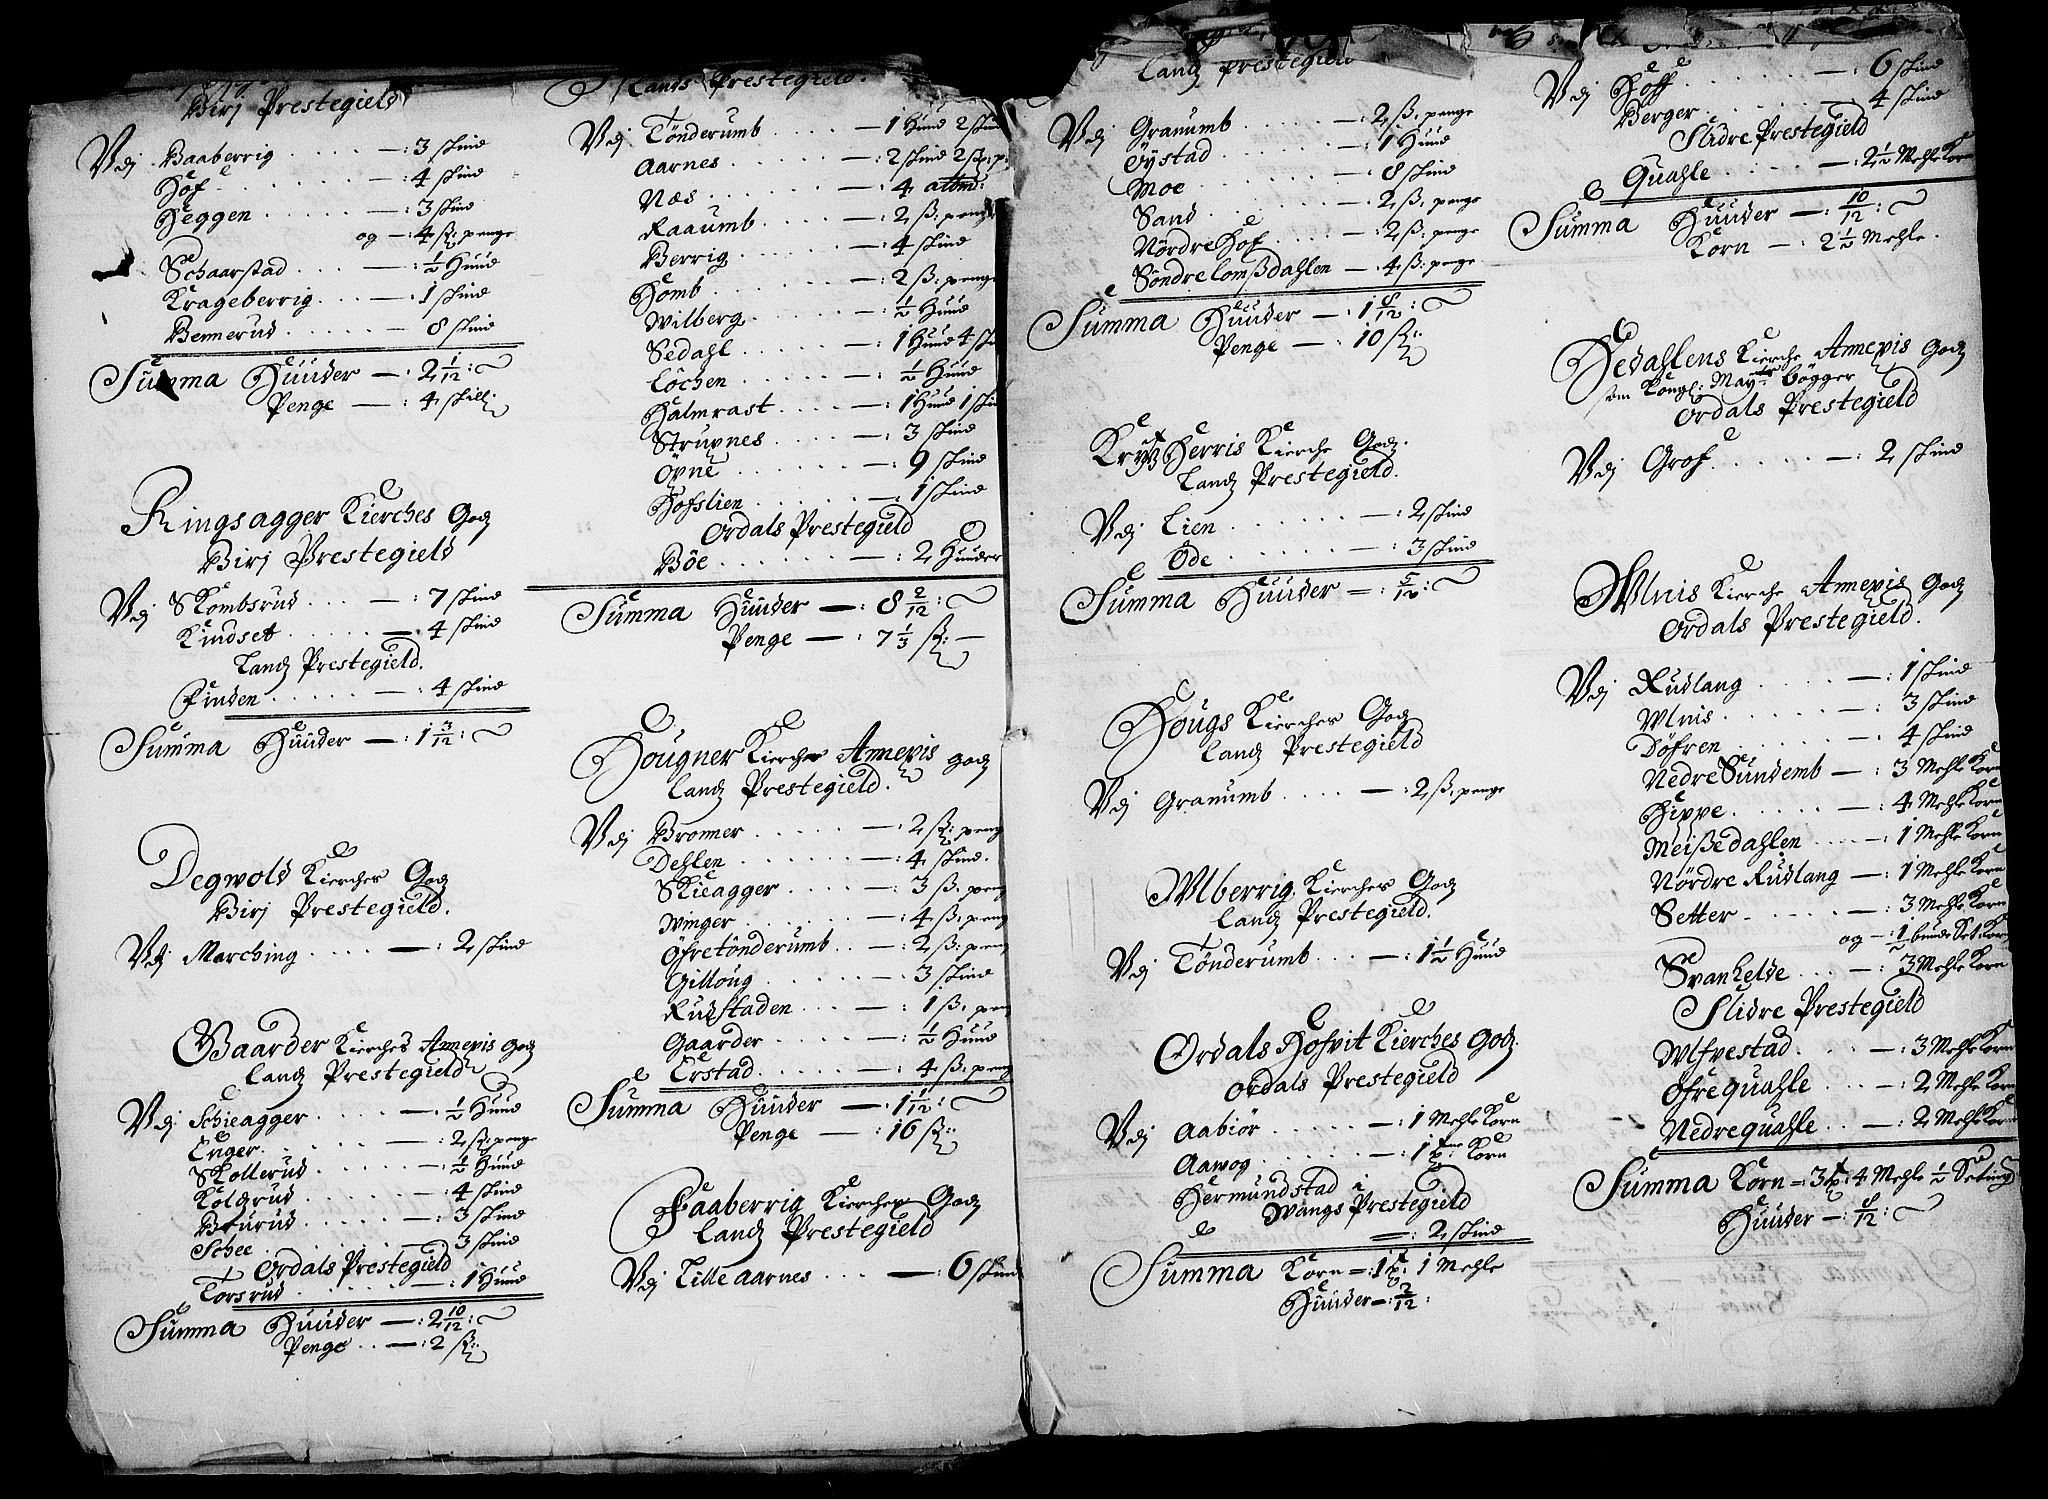 Birj Prestegield
Vdj Baaberrig . . . . — : 3 skind
Hof . . . . — : 4 skind
Heggen . . . . — : 3 skind
og — : 4 ß: penge
Schaarstad . . . — : ½ Huud
Krageberrig . . . — : 1 skind
Bennerud . . . . — 8 skind
Summa Huuder — : 2 1/12 :
Penge — : 4 skill:
Ringsagger Kierches Godz
Birj Prestegield
Vdj Skombsrud . . . — : 7 skind
Kindset . . . . — : 4 skind
Landz Prestegield.
Finden . . . . — : 4 skind
Summa Huuder — : 1 3/12 :
Degwolds Kierches Godz
Birj Prestegield.
Vdj Marching . . . . — : 2 skind
Gaarder Kierches Annexis Godz
Landz Prestegield
Vdj Schieagger . . . . — : ½ Huud
Enger . . . . — : 2 ß: penge
Skollerud . . . . — : ½ Huud
Koldrud . . . . — : 4 skind
Bturud . . . . — : 3 skind
Schee . . . . — : 3 skind
Ordals Prestegield
Torsrud . . . . — : 1 Huud
Summa Huuder — : 2 10/12 :
Penge . . — : 2 ß:
Lands Prestegield.
Vdj Tönderumb . . . . — 1 Huud 2 skind
Aarnes . . . . — : 2 skind 2 ß: p:
Næs . . . . — : 4 attm:
Raaumb . . . . — : 2 ß: penge
Berrig . . . . — : 4 skind
Homb . . . . — : 2 ß: penge
Wilberg . . . . — : ½ Huud
Sedahl . . . . — : 1 Huud 4 sk
Löchen . . . . — : ½ Huud
Halmrast . . . . — : 1 Huud 1 skin
Strupnes . . . . — : 3 skind
Öpne . . . . — : 9 skind
Hofslien . . . . — : 1 skind
Ordals Prestegield
Böe . . . . — : 2 Huuder
Summa Huuder — : 8 2/12 :
Penge — : 7 ⅓ ß: —
Hougner Kierches Annexis Godz
Landz Prestegield.
Vdj Bromer . . . . — : 2 ß: peng
Dehlen . . . . — : 4 skind.
Skieagger . . . . — : 3 ß: peng
Winger . . . . — : 4 ß: peng
Öfretönderumb . . — : 2 ß: peng
Gilloug . . . . — : 3 skind
Rudstaden . . . — : 1 ß: peng
Gaarder . . . . — : ½ Huud
Erstad . . . . — : 4 ß: peng
Summa Huuder — : 1 1/12 :
Penge — : 16 ß:
Faaberrig Kierches Godz
Landz Prestegield
Vdj Lille Aarnes . . . — : 6 skind
Landz Prestegield
Vdj Granumb . . . . — : 2 ß: penge
Öystad . . . . — : 1 Huud
Moe . . . . — : 8 skind
Sand . . . . — : 2 ß: penge
Nördre Hof . . . . — : 2 ß: penge
Söndre Lomßdahlen — : 4 ß: penge
Summa Huuder — : 1 8/12 :
Penge — : 10 ß:
Herris Kierche Godz.
Landz Prestegield.
Vdj Lien . . . . — : 2 skind
Öde . . . . — : 3 skind
Summa Huuder — : 5/12 :
Hougs Kierches Godz
Landz Prestegield
Vdj Granumb . . . . — : 2 ß: penge
Wlberrig Kierches Godz
Landz Prestegield.
Vdj Tönderumb . . . — : 1 ½ Huud
Ordals Hofvit Kierches Godz.
Ordals Prestegield
Vdj Aabiör . . . . — : 1 Mehle Korn
Aawog . . . . — : 1 Korn
Hermundstad i
Wangs Prestegield
— : 2 skind
Summa Korn = : 1 : 1 Mehle
Huuder — : 2/12 :
Vdj Hoff . . . . — : 6 skind
Berger . . . . — : 4 skind
Slidre Prestegield
Quahle . . . . — : 2 ½ Mehle Korn
Summa Huuder — : 10/12 :
Korn — : 2 ½ Mehle.
Hedahlens Kierche Annexis Godz
som Kongl: Maytz: bögger
Ordals Prestegield
Vdj Grof . . . . — : 2 skind
Wlnis Kierche Annexis Godz
Ordals Prestegield.
Vdj Rudlang . . . . — : 1 skind
Wlnis . . . . — : 3 skind
Döfren . . . . — : 4 skind
Nedre Sundemb — : 3 Mehle Korn
Hippe . . . . — : 4 Mehle Korn
Meißedahlen . . . — : 1 Mehle Korn
Nördre Rudlang — : 1 Mehle Korn
Setter . . . . — : 3 Mehle Korn
og — : ½ bunde Set: Korn
Svanhelde . . . — : 3 Mehle Korn
Slidre Prestegield
Wlfvestad . . . . — : 3 Mehle Korn
Öfre quahle . . . — : 2 Mehle Korn
Nedre quahle . . — : 2 Mehle Korn
Summa Korn = : 3 : 4 Mehle ½ Seting
Huuder — : 8/12 :